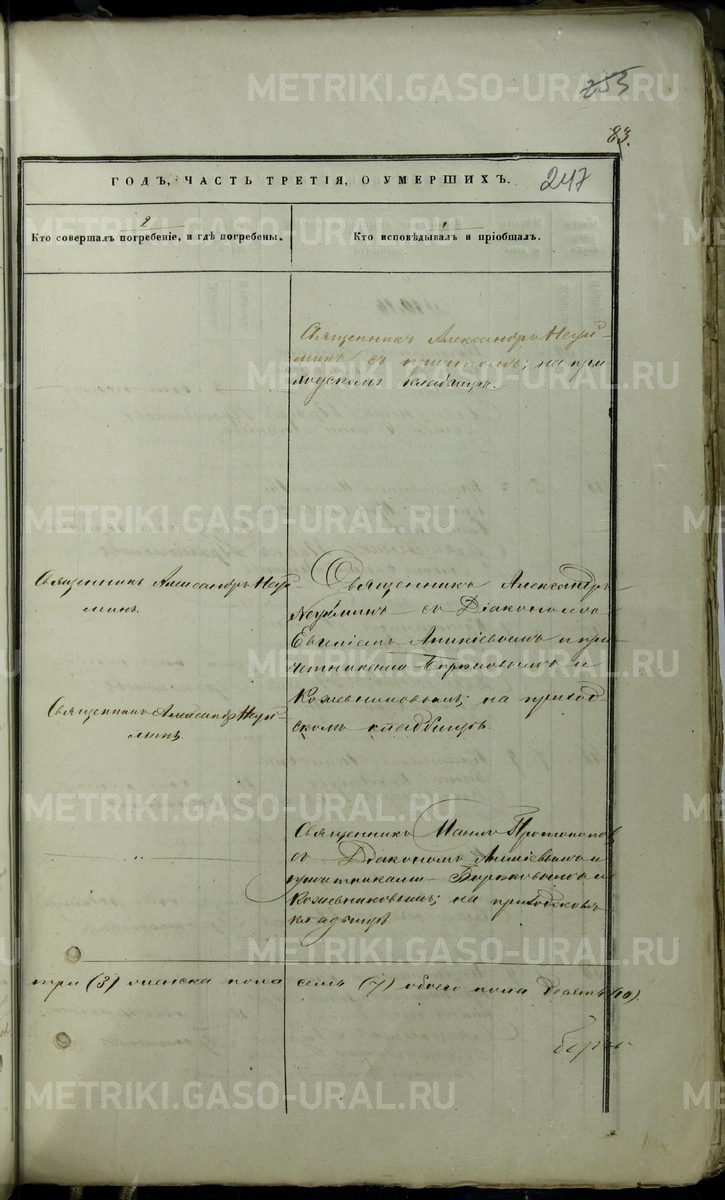 253
83.
ГОДЪ, ЧАСТЬ ТРЕТІЯ, О УМЕРШИХЪ.
247
2
1
Кто совершалъ погребеніе, и гдѣ погребены.
Кто исповѣдывалъ и пріобщалъ.
Священникъ Александръ Неуй-
минъ съ причтомъ; на при
ходскомъ кладбищѣ.
Священникъ Александръ Неуй
минъ.
Священникъ Александръ
Неуйминъ съ Діакономъ
Евгеніемъ Аникіевымъ и при
четниками Бирюковымъ и
Кожевниковымъ; на приход-
скомъ кладбищѣ.
Священникъ Александръ Неуй-
минъ
Священникъ Протопоповъ
съ Діакономъ Аникіевымъ и
причетниками Бирюковымъ и
Кожевниковымъ; на приходскомъ
кладбищѣ
три (3) женска пола семь (7) обоего пола десять (10).
METRIKI.GASO-URAL.RU